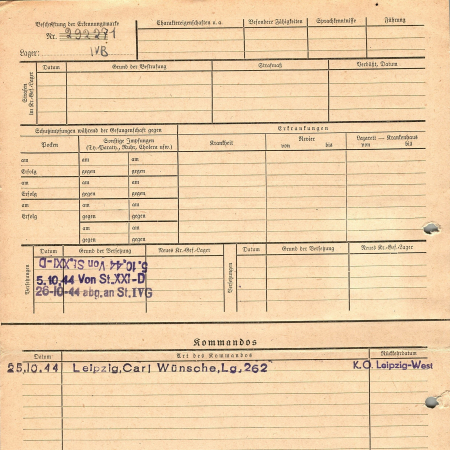 Beschriftung der Erkennungsmarke
Nr. 292291
Lager: IVB
Charaktereigenschaften u. a.
Besondere Fähigkeiten
Sprachkenntnisse
Führung
Strafen im Kr.-Gef.-Lager
Datum
Grund der Bestrafung
Strafmaß
Verbüßt, Datum
Schutzimpfungen während der Gefangenschaft gegen
Erkrankungen
Pocken
Sonstige Impfungen
(Ty.-Paraty., Ruhr, Cholera usw.)
Krankheit
Revier
von bis
Lazarett — Krankenhaus
von bis
am am am
Erfolg gegen gegen
am am am
Erfolg gegen gegen
am am am
Erfolg gegen gegen
am am
gegen gegen
Versetzungen
Datum
Grund der Versetzung
Neues Kr.-Gef.-Lager
Versetzungen
Datum
Grund der Versetzung
Neues Kr.-Gef.-Lager
5.10.44 Von St.XXI-D
5.10.44 Von St.XXI-D
26-10-44 abg. an St.IVG
Kommandos
Datum
Art des Kommandos
Rückkehrdatum
25.10.44 Leipzig,Carl Wünsche,Lg,262 K.O. Leipzig-West